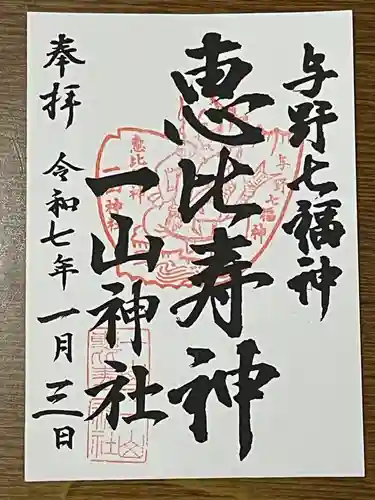 与野七福神
恵比寿神
一山神社
奉拝
令和七年一月三日
恵比寿神
一山神社
与野七福神